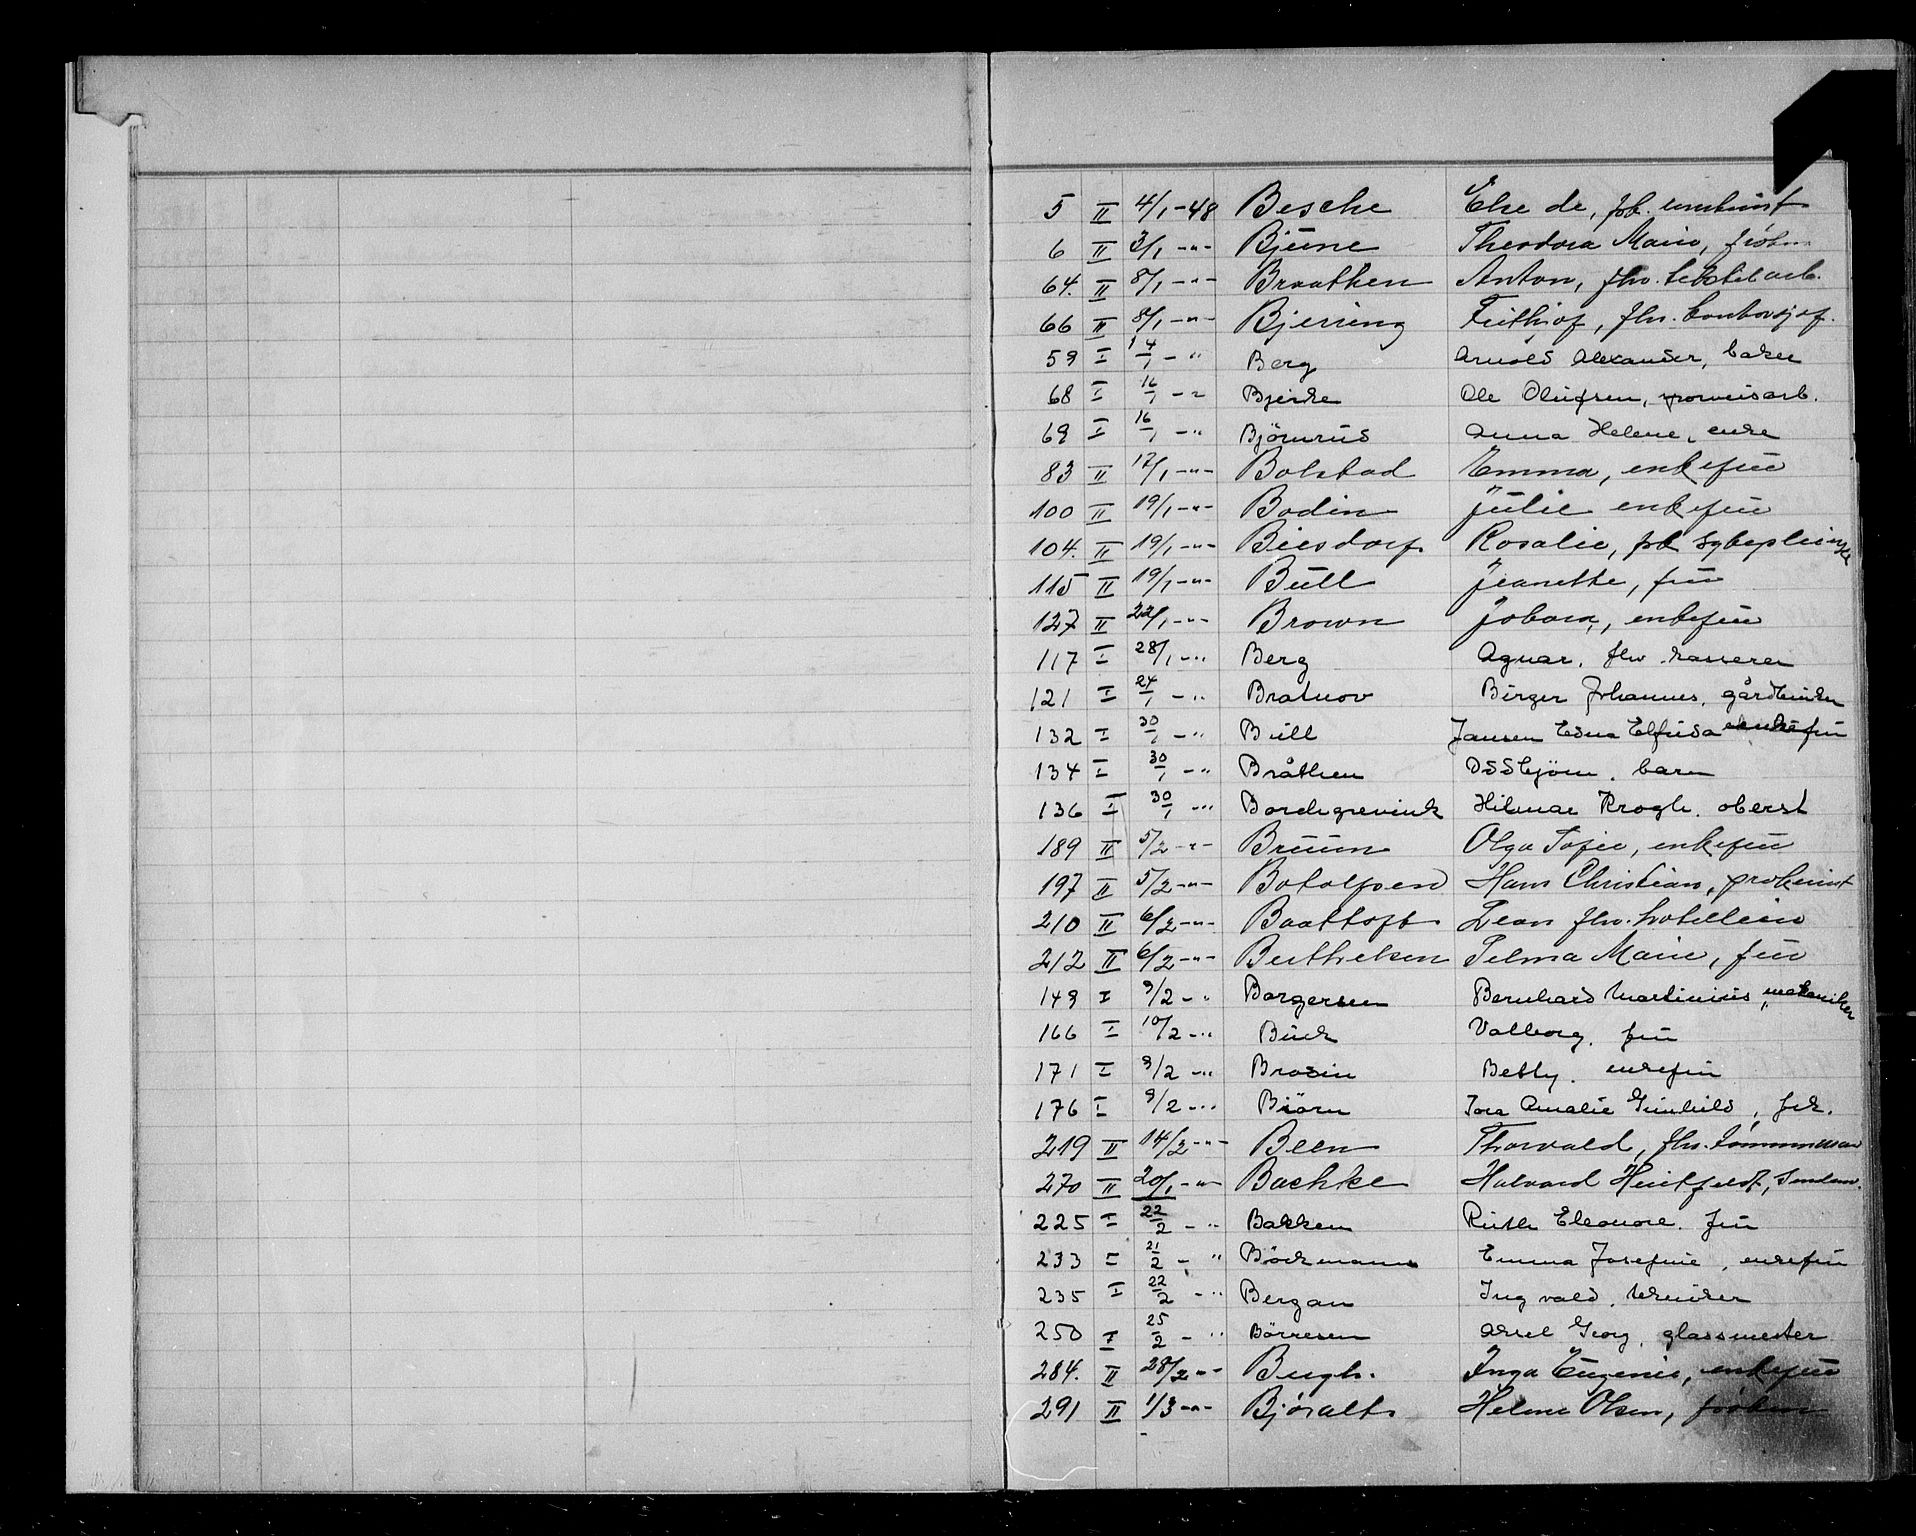 5 II 4/1-48 Besche Else de, frk.
6 II 3/1 -"- Bjune Theodora Marie, frøken
64. II 8/1 -"- Braathen Anton, fhv. tekstilarb.
66 II 8/1 -"- Bjerring Frithjof, fhv. kontorsjef.
59 I 14/1 - " Berg Arnold Alexander, baker
68 I 16/1 - " Bjerke Ole Olufsen,
69 I 16/1 - " Björnrud Anna Helene, enke
83 II 17/1 -"- Bolstad Emma, enkefru
100 II 19/1 -"- Bodin Julie enkefru
104. II 19/1 -"- Biesdorf Rosalie, frk sykepleierske
115 II 19/1 -"- Bull Jeanette, fru
127 II 22/1 -"- Brown enkefru
117 I 28/1 - " Berg Agnar, fhv kasserer
121 I 24/1 - " Bratnov Birger Johannes, gårdbruker
132 I 30/1 - " Bull Jansen Edna Elfrida enkefru
134 I 30/1 - " Bråthen Oddbjörn. barn
136 I 30/1 - " Borchgrevink Hilmar Krogh. oberst
189 II 5/2 -"- Bruun Olga Sofie, enkefru
197 II 5/2 -"- Botolfsen Hans Christian, prokurist
210 II 6/2 -"- Baattoft fhv.
212 II 6/2 -"- Berthelsen Selma Marie, fru
149 I 9/2 - " Borgersen Bernhard Martinius, mekaniker
166 I 10/2 - " Buck Valborg. fru
171 I 9/2 - " Brosin Betty. enkefru
176 I 9/2 - " Biörn Tora Amalie Gunhild, frk.
219 II 14/2 -"- Been Thorvald, fhv. tømmermann
270 II 20/1 -"- Bachke Halvard Huitfeldt,
225 I 22/2 - " Bakken Ruth Eleonore. fru
233 I 21/2 - " Böckmann Emma Josefine, enkefru
235 I 22/2 - " Bergan Ingvald. tekniker
250 I 25/2 - " Börresen Aksel Georg. glassmester
284. II 28/2 -"- Bugh. Inga Eugenie, enkefru
291 II 1/3 -"- Bjøralt Helene Olsen, frøken